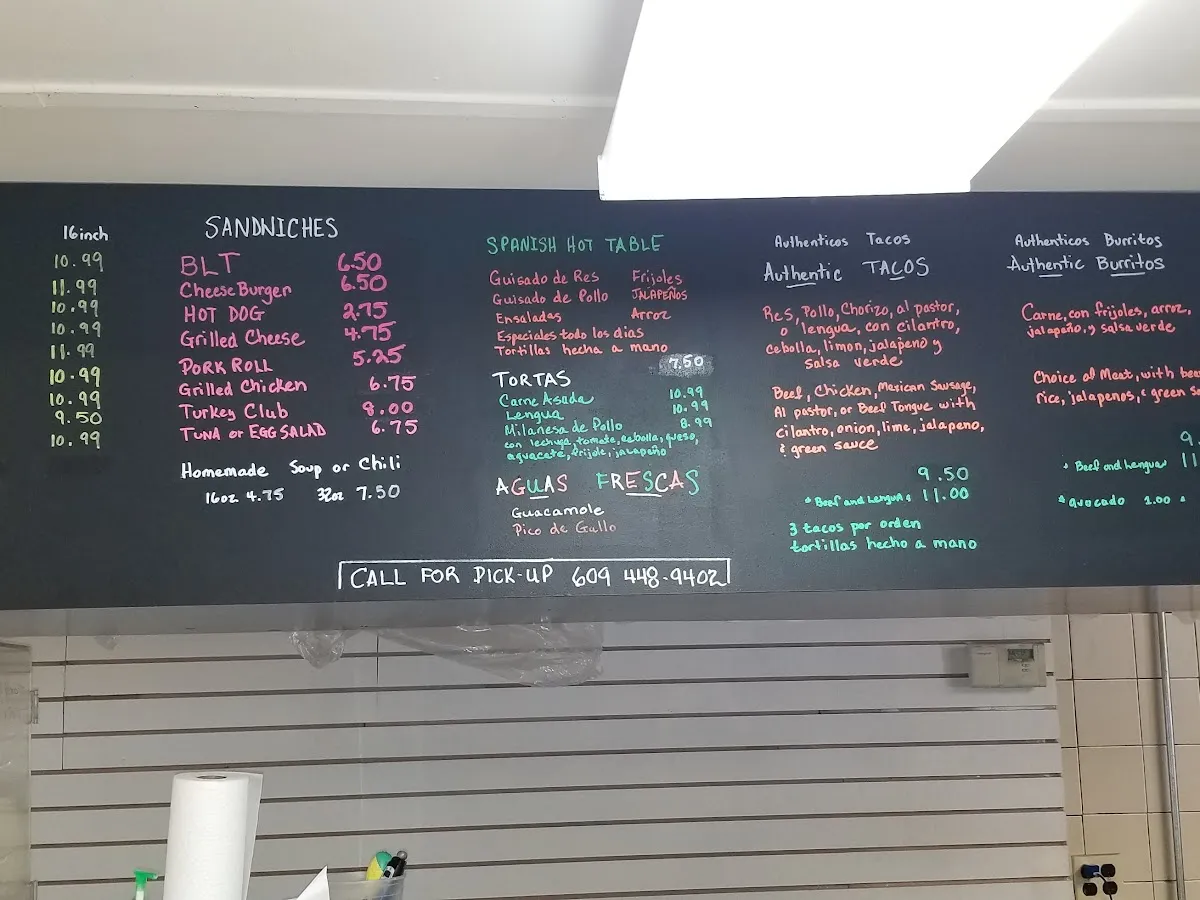 16inch
10.99
11.99
10.99
10.99
11.99
10.99
10.99
9.50
10.99
SANDWICHES
BLT 6.50
CheeseBurger 6.50
HOT DOG 2.75
Grilled Cheese 4.75
PORK ROLL 5.25
Grilled Chicken 6.75
Turkey Club 8.00
TUNA or EGG SALAD 6.75
Homemade Soup or Chili
16oz 4.75 32oz 7.50
SPANISH HOT TABLE
Guisado de Res Frijoles
Guisado de Pollo JALAPEÑOS
Ensaladas Arroz
Especiales todo los dias
Tortillas hecha a mano
7.50
TORTAS
Carne Asada 10.99
Lengua 10.99
Milanesa de Pollo 8.99
con lechuga, tomate, cebolla, queso,
aguacate, frijole, jalapeño
AGUAS FRESCAS
Guacamole
Pico de Gallo
CALL FOR PICK-UP 609 448-9402
Authenticos Tacos
Authentic TACOS
Res, Pollo, Chorizo, al pastor,
o lengua, con cilantro,
cebolla, limon, jalapeño y
salsa verde
Beef, Chicken, Mexican Sausage,
Al pastor, or Beef Tongue with
cilantro, onion, lime, jalapeno,
& green sauce
9.50
* Beef and Lengua * 11.00
3 tacos por orden
tortillas hecho a mano
Authenticos Burritos
Authentic Burritos
Carne, con frijoles, arroz,
jalapeño, y salsa verde
Choice of Meat, with
rice, jalapenos, & green
9.
* Beef and Lengua 11
* avocado 1.00 *